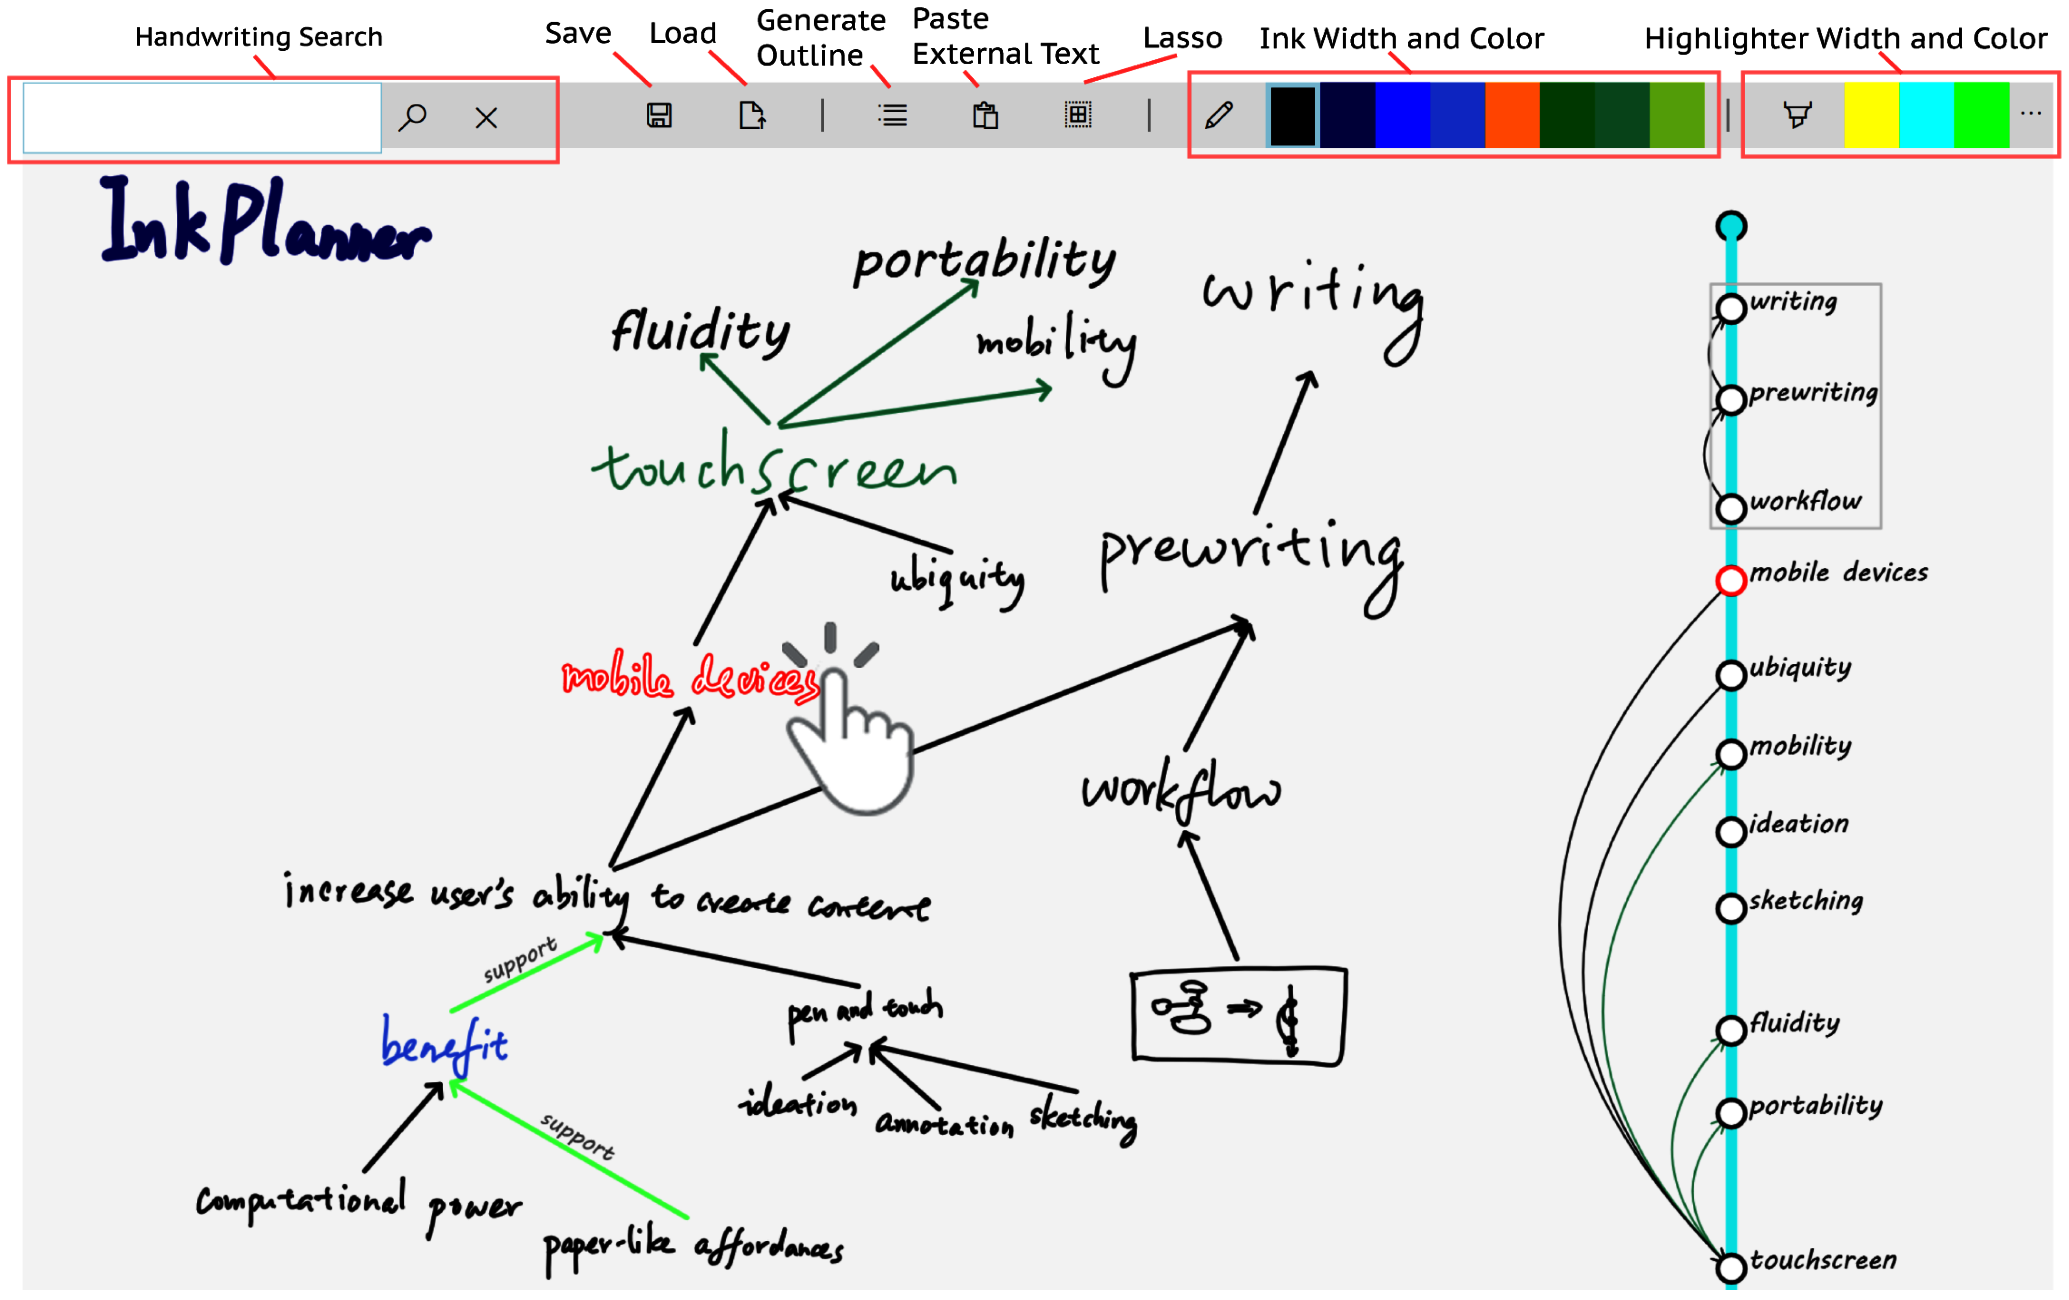 Handwriting Search
Save
Load
Generate
Outline
Paste
External Text
Lasso
Ink Width and Color
Highlighter Width and Color
InkPlanner
portability
writing
fluidity
mobility
touchscreen
ubiquity
prewriting
mobile devices
workflow
increase user's ability to create content
support
benefit
pen and touch
ideation
annotation
sketching
support
computational power
paper-like affordances
writing
prewriting
workflow
mobile devices
ubiquity
mobility
ideation
sketching
fluidity
portability
touchscreen